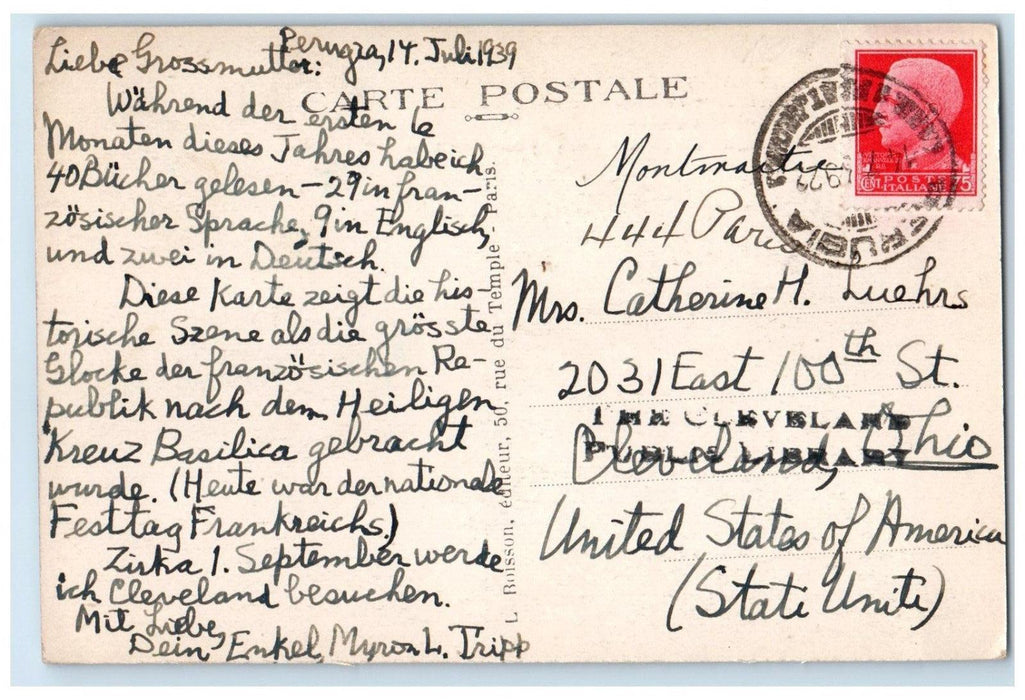 Perugia, 14. Juli 1939
Liebe Grossmutter:
Während der ersten 6
Monaten dieses Jahres habe ich
40 Bücher gelesen – 29 in fran-
zösischer Sprache, 9 in Englisch,
und zwei in Deutsch.
Diese Karte zeigt die his-
torische Szene als die grösste
Glocke der französischen Re-
publik nach dem Heiligen
Kreuz Basilica gebracht
wurde. (Heute war der nationale
Festtag Frankreichs.)
Zirka 1. September werde
ich Cleveland besuchen.
Mit Liebe,
Dein Enkel, Myron L. Tripp
CARTE POSTALE
L. Boisson, éditeur, 50, rue du Temple - Paris.
Montmartre
444 Paris
Mrs. Catherine H. Luehrs
2031 East 100th St.
THE CLEVELAND
PUBLIC LIBRARY
Cleveland, Ohio
United States of America
(Stati Uniti)
PERUGIA
CENT POSTE 75
ITALIANE